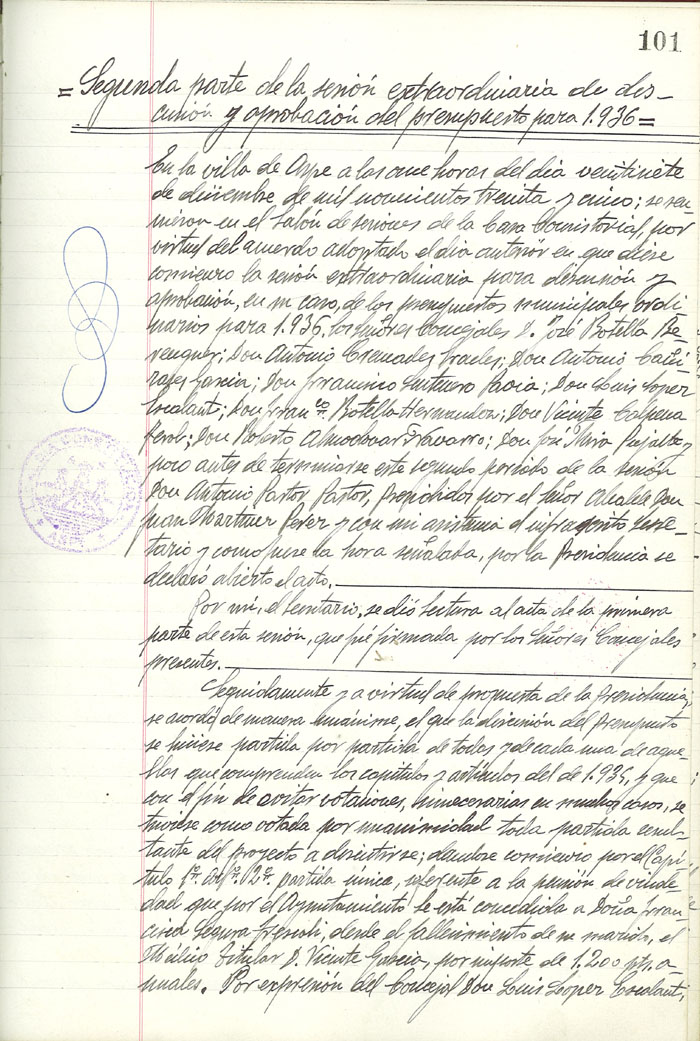 101
= Segunda parte de la sesión extraordinaria de dis-
cusión y aprobación del presupuesto para 1.936 =
En la villa de Aspe a las once horas del dia veintisiete
de diciembre de mil novecientos treinta y cinco; se reu-
nieron en el Salón de sesiones de la Casa Consistorial, por
virtud del acuerdo adoptado el dia anterior en que dióse
comienzo la sesión extraordinaria para discusión y
aprobación, en su caso, de los presupuestos municipales ordi-
narios para 1.936, los Señores Concejales D. José Botella Be-
renguer; Don Antonio Cremades Gracis; Don Antonio
Garcia; Don Francisco Pavia; Don Luis Lopez
Escalant; Don Fran co Botella Hernandez; Don Vicente Calpena
Don Roberto Almodovar Navarro; Don José Mira Pujalte y
poco antes de terminarse este segundo periodo de la sesión
Don Antonio Pastor Pastor, presididos por el Señor Alcalde Don
Juan Martinez Perez y con mi asistencia el infrascrito Secre-
tario y como fuese la hora señalada, por la Presidencia se
declaró abierto el acto.
Por mí, el Secretario, se dió lectura al acta de la primera
parte de esta sesión, que fué firmada por los Señores Concejales
presentes.
Seguidamente y a virtud de propuesta de la Presidencia,
se acordó de manera unánime, el que la discusión del Presupuesto
se hiciese partida por partida de todas y de cada una de aque-
llas que comprenden los capítulos y artículos del de 1.935, y que
con el fin de evitar votaciones, innecesarias en muchos casos, se
tuviese como votada por unanimidad toda partida resul-
tante del proyecto a discutirse; dandose comienzo por el Capi-
tulo 1º. Artº. 2º. partida única, referente a la pensión de viude-
dad que por el Ayuntamiento se está concedida a Doña Fran-
cisca Segura desde el fallecimiento de su marido, el
Médico titular D. Vicente Garcia, por importe de 1.200 pts. a-
nuales. Por expresión del Concejal Don Luis Lopez Escalant,